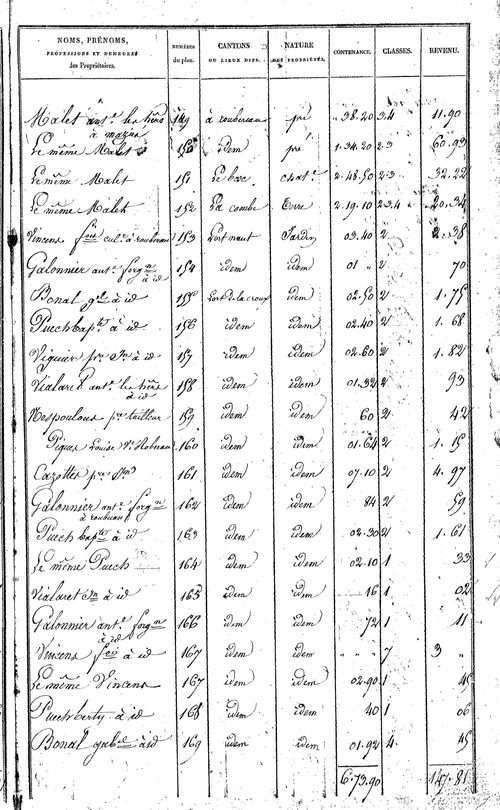 NOMS, PRÉNOMS, PROFESSIONS ET DEMEURES des Propriétaires. NUMÉROS du plan. CANTONS OU LIEUX DITS. NATURE DES PROPRIÉTÉS. CONTENANCE. CLASSES. REVENU.
Malet ant.e les hérs 149 à roubereau pré " 38.20 3.4 11.90
à mazies
Le même Malet 150 idem pré 1.34.20 2.3 60.93
Le même Malet 151 Le bac chat.e 2.48.50 2.3 32.22
Le même Malet 152 La combe Terre 2.19.10 2.3.4 20.34
Vincens f.ois cul.r à roubereau 153 Jardin 03.40 2 2.38
Galonnier ant.e forg.n à id 154 idem idem 01 " 2 70
Bonal g.el à id 155 idem 02.50 2 1.75
Puech bap.te à id 156 idem idem 02.40 2 1.68
Viguier p.re à id 157 idem idem 02.60 2 1.82
Vialaret ant.e les hérs 158 idem idem 01.32 2 93
à id
Nespoulous p.re tailleur 159 idem idem 60 2 42
Louise V.e 160 idem idem 01.64 2 1.15
Cazottes p.re 161 idem idem 07.10 2 4.97
Galonnier ant.e forg.n 162 idem idem 84 2 59
à roubereau
Puech bap.te à id 163 idem idem 02.30 2 1.61
Le même Puech 164 idem idem 02.10 1 33
Vialaret à id 165 idem idem 16 1 02
Galonnier ant.e forg.n 166 idem idem 72 1 11
à id
Vincens f.ois à id 167 idem idem " " " 7 3 "
Le même Vincens 167 idem idem 02.90 1 46
Puechberty à id 168 idem idem 40 1 06
Bonal gab.el à id 169 idem idem 01.92 4. 45
6.73.90 147.81